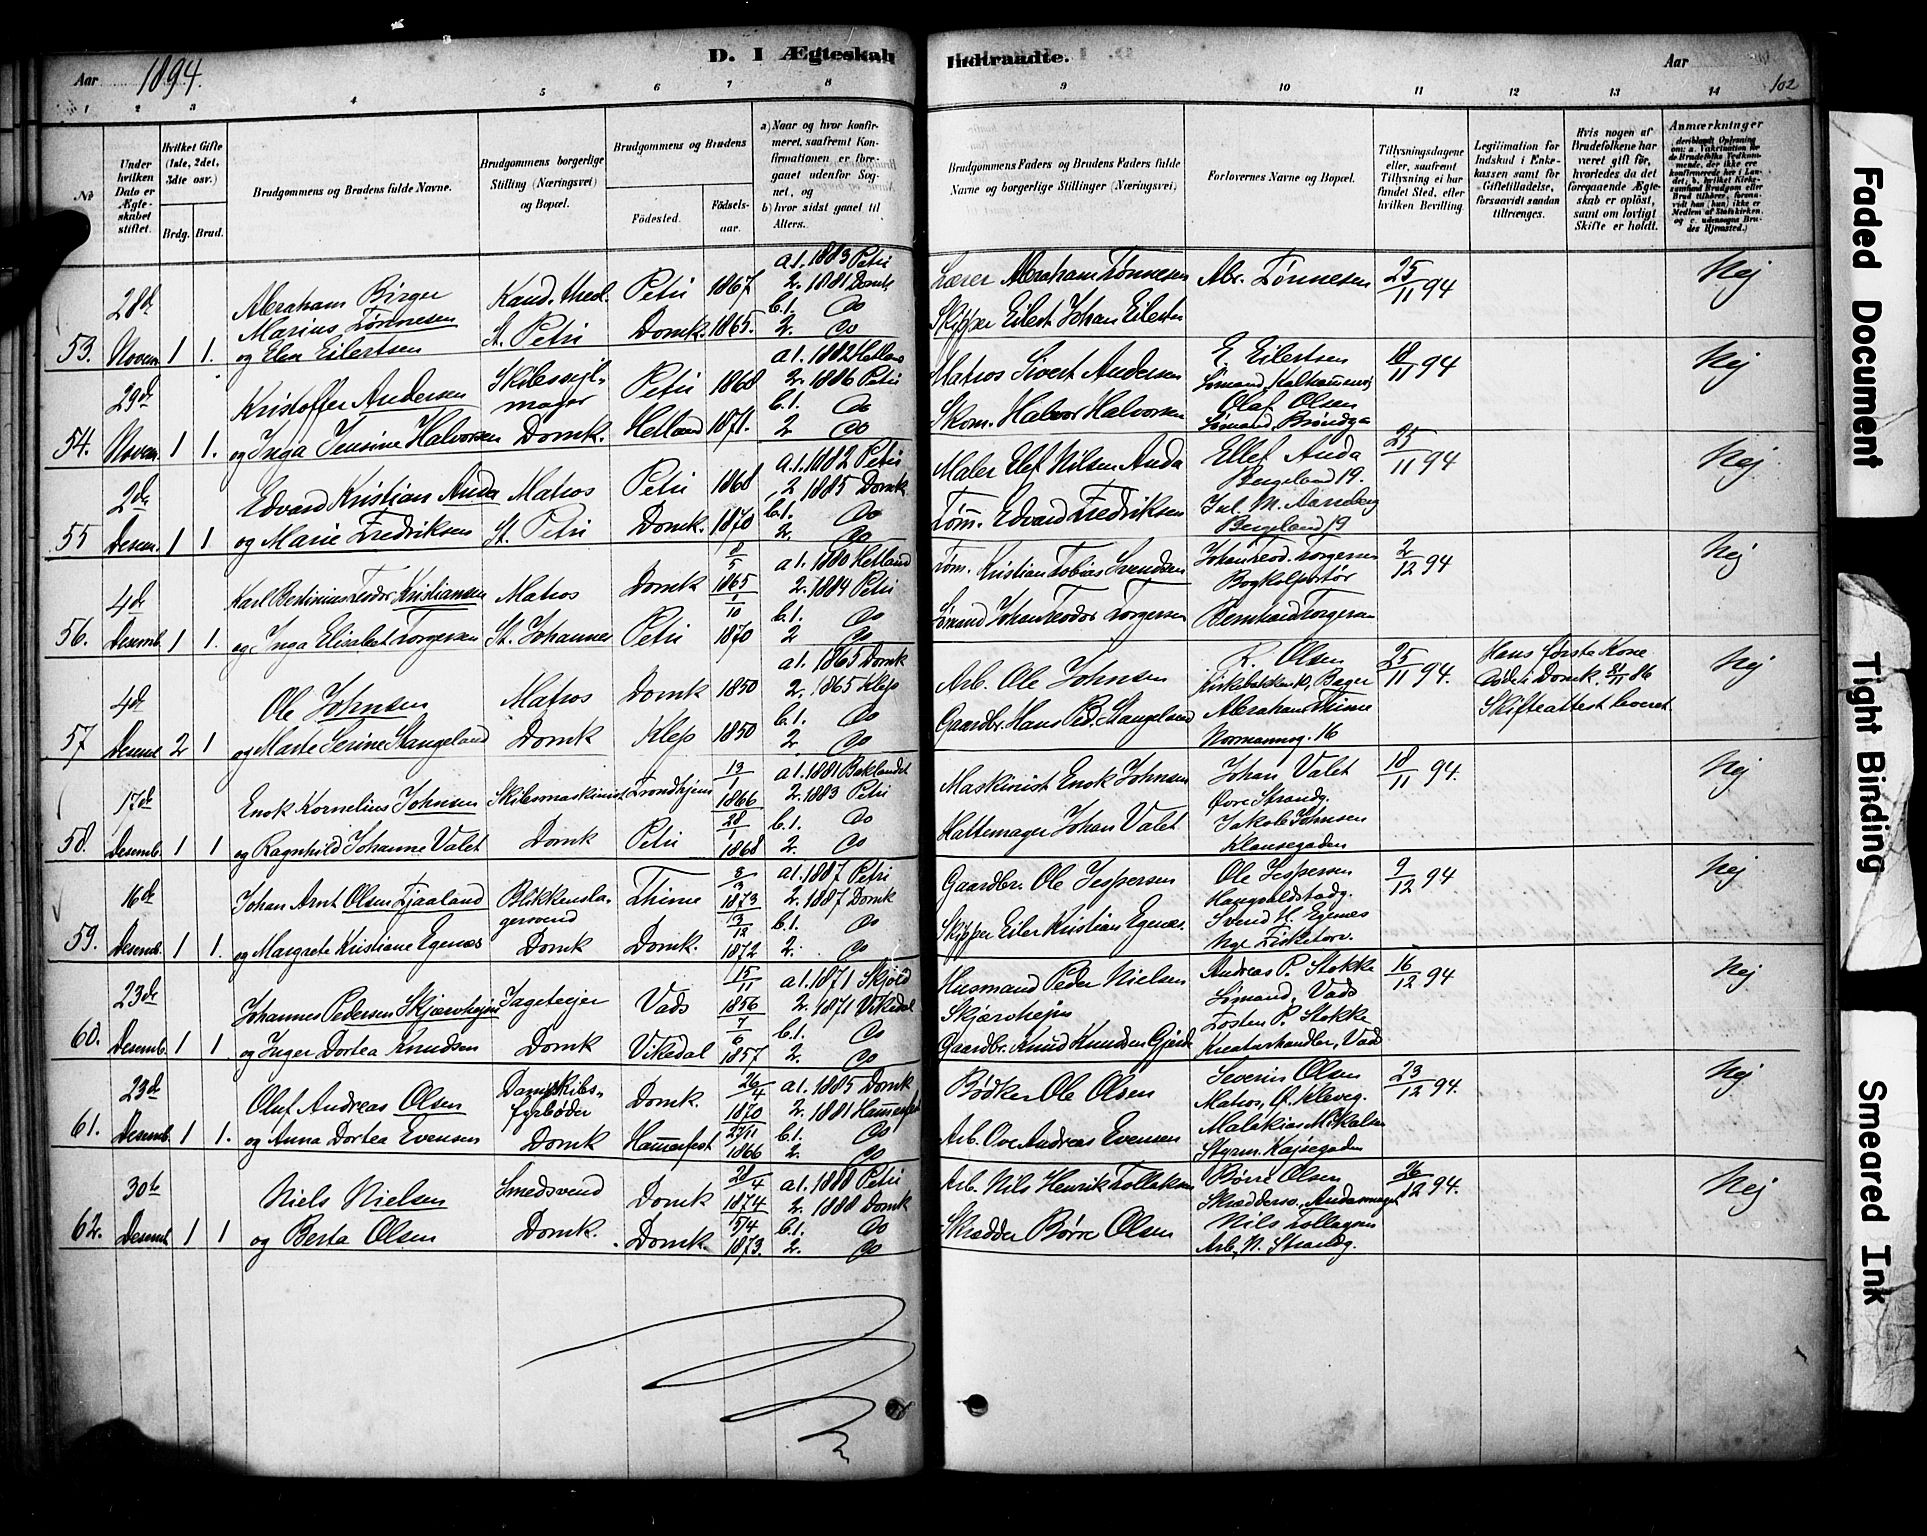 D. I Ægteskab Indtraadte.
Aar 1894.
Aar
102
1 2 3 4 5 6 7 8 9 10 11 12 13 14
No
Under hvilken Dato er Ægteskabet stiftet.
Hvilket Gifte (1ste, 2det, 3die osv.)
Brdg. Brud.
Brudgommens og Brudens fulde Navne.
Brudgommens borgerlige Stilling (Næringsvei) og Bopæl.
Brudgommens og Brudens
Fødested.
Fødselsaar.
a) Naar og hvor konfirmeret, saafremt Konfirmationen er foregaaet udenfor Sognet, og
b) hvor sidst gaaet til Alters.
Brudgommens Faders og Brudens Faders fulde Navne og borgerlige Stillinger (Næringsvei)
Forlovernes Navne og Bopæl.
Tillysningsdagene eller, saafremt Tillysning ei har fundet Sted, efter hvilken Bevilling.
Legitimation for Indskud i Enkekassen samt for Giftetilladelse, forsaavidt saadan tiltrænges.
Hvis nogen af Brudefolkene har været gift før, hvorledes da det foregaaende Ægteskab er opløst, samt om lovligt Skifte er holdt.
Anmærkninger
53. 28de Novem. 1 1.
Abraham Birger
Marius Tönnesen
og Elen Eilertsen
Kand. theol.
St. Petri
Petri 1867
Domk. 1865.
a 1. 1883 Petri
2. 1881 Domk
b. 1. Do
2. Do
Lærer Abraham Tönnesen
Skipper Eilert Johan Eilertsen
Abr. Tönnesen
25/11 94
Nej
54. 29de Novem. 1 1.
Kristoffer Andersen
og Inga Jensine Halvorsen
Skibsseglmager
Domk.
Petri 1868
Hetland 1871.
a 1. 1882 Hetland
2. 1886 Petri
b. 1. Do
2 Do
Matros Sivert Andersen
Skom. Halvor Halvorsen
E. Eilertsen
Olaf Olsen
Sömand, Bröndga
18/11 94
Nej
55 2de Desem. 1 1.
Edvard Kristian Anda
og Marie Fredriksen
Matros
St. Petri
Petri 1868
Domk. 1870
a. 1. 1882 Petri
2 1885 Domk
b. 1. Do
2. Do
Maler Elef Nilsen Anda
Töm. Edvard Fredriksen
Ellef Anda
Bergeland 19.
Jul. M. Aarsberg
Bergeland 19
25/11 94
Nej
56. 4de Desemb. 1 1.
Karl Bertinius Teodor Kristiansen
og Inga Elisabet Torgersen
Matros
St. Johannes
Domk 8/5 1865
Petri 1/10 1870
a 1. 1880 Hetland
2. 1884 Petri
b. 1. Do
2 Do
Töm. Kristian Tobias Svendsen
Sömand Johan Teodor Torgersen
Johan Teod. Torgersen
Bogkolportör
Bernhard Torgersen
2/12 94
Nej
57 4de Desemb 2 1
Ole Johnsen
og Marte Serine Stangeland
Matros
Domk
Domk 1850
Klep 1850
a 1. 1865 Domk
2. 1865 Klep
b. 1. Do
2. Do
Arb. Ole Johnsen
Gaardbr. Hans Ped. Stangeland
R. Olsen
Kirkebakken 10, Bager
Abraham Thime
Normannsg. 16
25/11 94.
Hans første Kone
döde i Domk. 21/11 86
Skifteattest leveret
Nej
58. 17de Desemb. 1 1
Enok Kornelius Johnsen
og Ragnhild Johanne Valet
Skibsmaskinist
Domk
Trondhjem 13/1 1866
Petri 28/1 1868
a 1. 1881 Baklandet
2. 1883 Petri
b. 1. Do
2. Do
Maskinist Enok Johnsen
Hattemager Johan Valet
Johan Valet
Øvre Strandg.
Jakob Johnsen
Klausegaden
18/11 94.
Nej
59. 16de Desemb. 1 1.
Johan Arnt Olsen Tjaaland
og Margrete Kristiane Egenæs
Blikkenslagersvend
Domk
Thime 3/3 1873
Domk. 13/12 1872
a 1. 1887 Petri
2. 1887 Domk
b. 1. Do
2. Do
Gaardbr. Ole Jespersen
Skipper Eiler Kristian Egenæs.
Ole Jespersen
Haugvaldstadg.
Svend H. Egenæs
Nye Fisketorv.
9/12 94
Nej
60. 23de Desemb. 1 1
Johannes Pedersen Skjærshejm
og Inger Dortea Knudsen
Domk
Vads 15/11 1856
Vikedal 7/6 1857
a 1. 1871 Skjold
2. 1871 Vikedal
b. 1. Do
2. Do
Husmand Peder Nielsen
Skjærshejm
Gaardbr. Knud Knudsen Gjerde
Andreas P. Stokke
Sömand, Vads
Tosten P. Stokke
Kreaturhandler, Vads
16/12 94
Nej
61. 23de Desemb. 1 1.
Oluf Andreas Olsen
og Anna Dortea Evensen
Dampskibsfyrböder
Domk
Domk. 26/4 1870
Hammerfest 27/11 1866
a 1. 1885 Domk
2. 1881 Hammerfest
b. 1. Do
2. Do
Bödker Ole Olsen
Arb. Ove Andreas Evensen
Severin Olsen
Matros, Ø. Kleveg.
Malakias Mikalsen
Styrm. Kajsegaden
23/12 94.
Nej
62. 30te Desemb 1 1
Niels Nielsen
og Berta Olsen
Smedsvend
Domk.
Domk 28/4 1874
Domk. 5/4 1873.
a 1. 1888 Petri
2. 1888 Domk
b. 1. Do
2. Do
Arb. Nils Henrik Tollaksen
Skrædder Börre Olsen
Börre Olsen
Skræddersv. Andasmuget
Nils Tollagsen
Arb. N. Strandg.
26/12 94.
Nej
Faded Document
Tight Binding
Smeared Ink